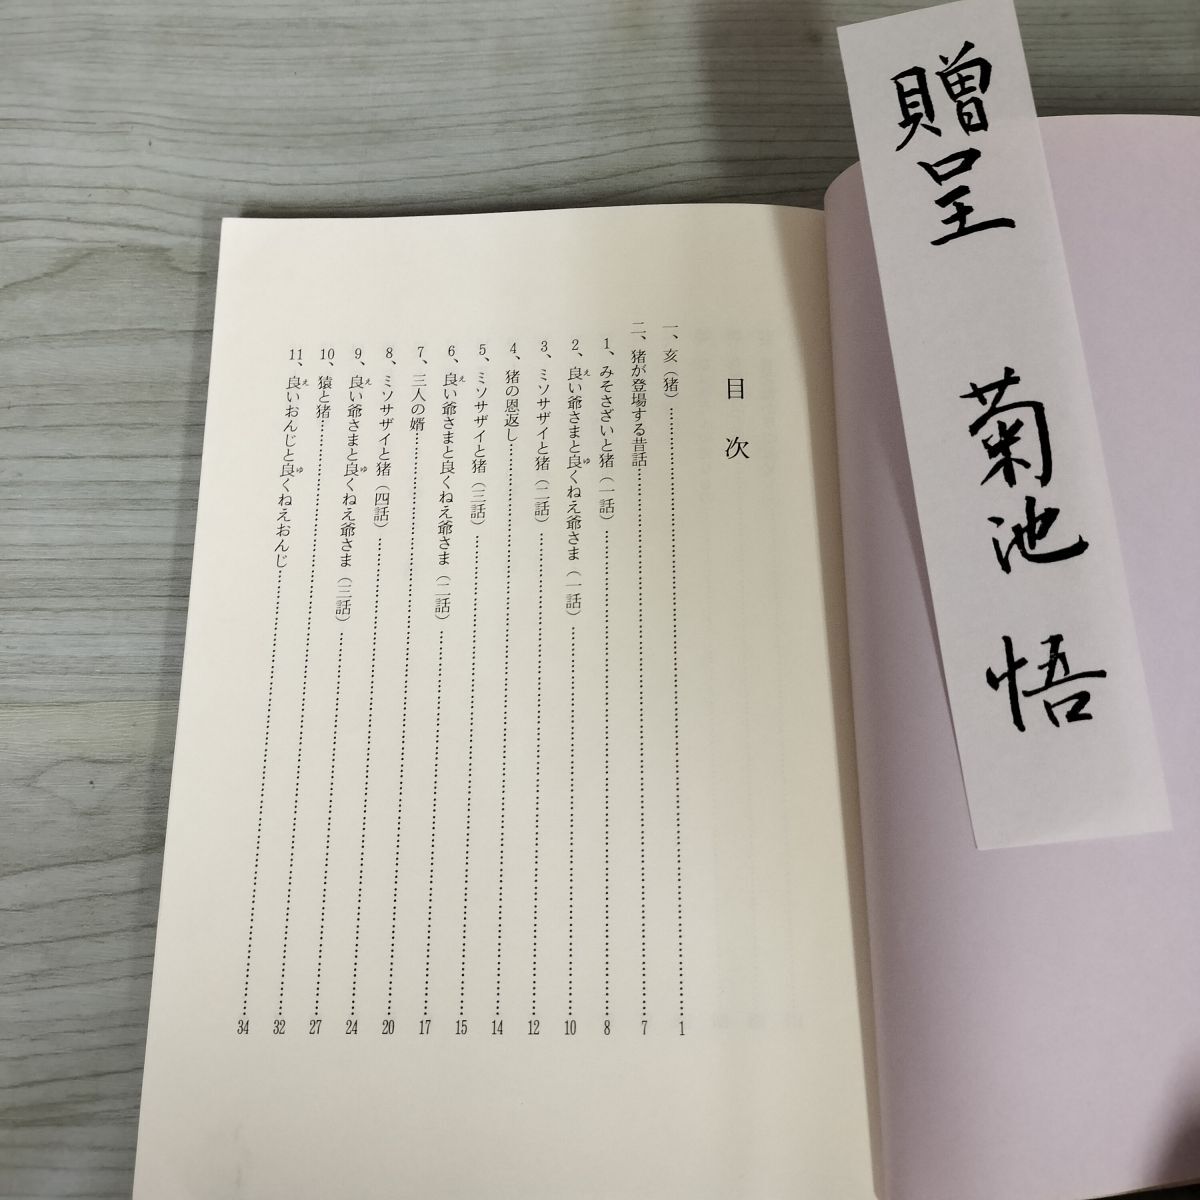 贈呈 菊池 悟
目次
一、亥（猪）……………………1
二、猪が登場する昔話……………………7
1、みそさざいと猪（一話）……………………8
2、良い爺さまと良くねえ爺さま（一話）……………………10
3、ミソサザイと猪（二話）……………………12
4、猪の恩返し……………………14
5、ミソサザイと猪（三話）……………………15
6、良い爺さまと良くねえ爺さま（二話）……………………17
7、三人の婿……………………20
8、ミソサザイと猪（四話）……………………24
9、良い爺さまと良くねえ爺さま（三話）……………………27
10、猿と猪……………………32
11、良いおんじと良くねえおんじ……………………34